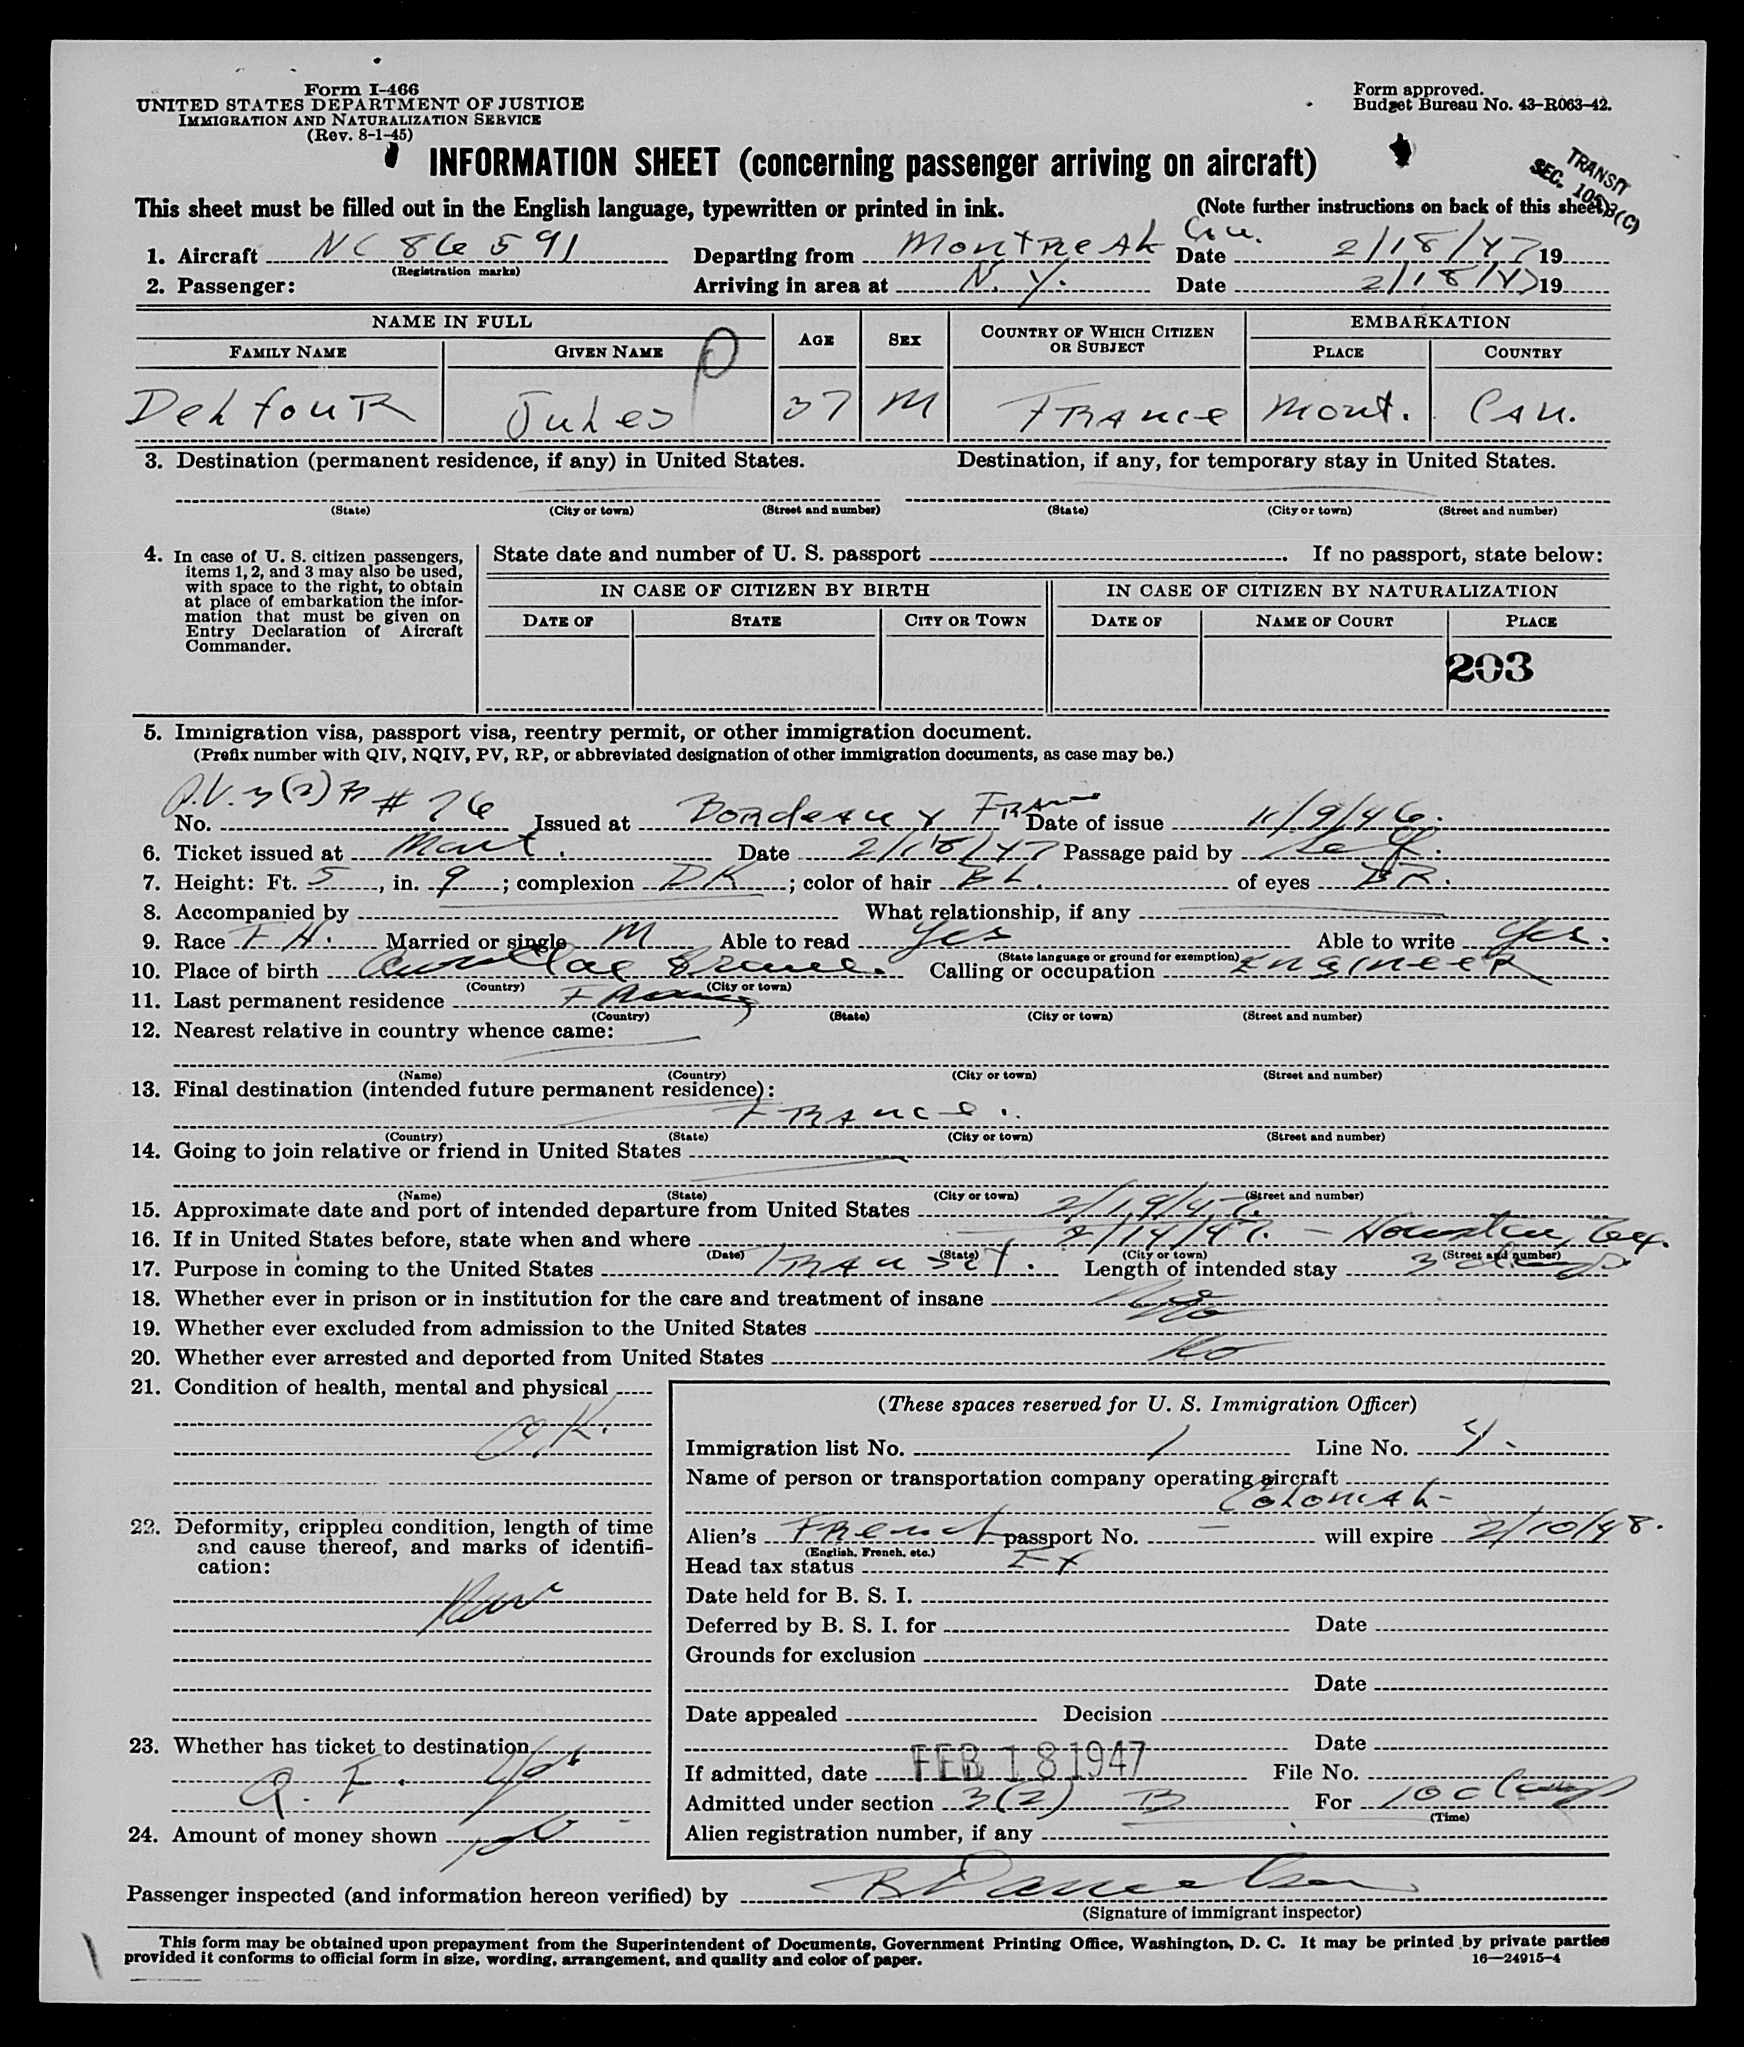 Form I-466
UNITED STATES DEPARTMENT OF JUSTICE
IMMIGRATION AND NATURALIZATION SERVICE
(Rev. 8-1-45)
Form approved.
Budget Bureau No. 43-R063-42.
INFORMATION SHEET (concerning passenger arriving on aircraft)
TRANSIT
This sheet must be filled out in the English language, typewritten or printed in ink. (Note further instructions on back of this sheet.)
1. Aircraft NC 86591 Departing from Montreal Can. Date 2/18/47 19
(Registration marks)
2. Passenger: Arriving in area at N.Y. Date 2/18/47 19
NAME IN FULL AGE SEX COUNTRY OF WHICH CITIZEN OR SUBJECT EMBARKATION
FAMILY NAME GIVEN NAME PLACE COUNTRY
Delfour Jules 37 M France Mont. Can.
3. Destination (permanent residence, if any) in United States. Destination, if any, for temporary stay in United States.
(State) (City or town) (Street and number) (State) (City or town) (Street and number)
4. In case of U. S. citizen passengers, items 1, 2, and 3 may also be used, with space to the right, to obtain at place of embarkation the information that must be given on Entry Declaration of Aircraft Commander.
State date and number of U. S. passport If no passport, state below:
IN CASE OF CITIZEN BY BIRTH IN CASE OF CITIZEN BY NATURALIZATION
DATE OF STATE CITY OR TOWN DATE OF NAME OF COURT PLACE
203
5. Immigration visa, passport visa, reentry permit, or other immigration document.
(Prefix number with QIV, NQIV, PV, RP, or abbreviated designation of other immigration documents, as case may be.)
No. # 76 Issued at Bordeaux France Date of issue 11/9/46.
6. Ticket issued at Mont. Date 2/18/47 Passage paid by Self.
7. Height: Ft. 5, in. 9; complexion DK; color of hair BL. of eyes BR.
8. Accompanied by What relationship, if any
9. Race FH. Married or single M Able to read Yes Able to write Yes.
(State language or ground for exemption)
10. Place of birth Aurillac France. Calling or occupation Engineer
(Country) (City or town)
11. Last permanent residence France
(Country) (State) (City or town) (Street and number)
12. Nearest relative in country whence came:
(Name) (Country) (City or town) (Street and number)
13. Final destination (intended future permanent residence):
France.
(Country) (State) (City or town) (Street and number)
14. Going to join relative or friend in United States
(Name) (State) (City or town) (Street and number)
15. Approximate date and port of intended departure from United States 2/19/47.
16. If in United States before, state when and where 2/14/47. - Houston, Tex.
(Date) (State) (City or town) (Street and number)
17. Purpose in coming to the United States Transit. Length of intended stay 3 days
18. Whether ever in prison or in institution for the care and treatment of insane No
19. Whether ever excluded from admission to the United States No
20. Whether ever arrested and deported from United States No
21. Condition of health, mental and physical
O.K.
22. Deformity, crippled condition, length of time and cause thereof, and marks of identification:
23. Whether has ticket to destination
Yes
24. Amount of money shown
(These spaces reserved for U. S. Immigration Officer)
Immigration list No. 1 Line No. 4.
Name of person or transportation company operating aircraft
Colonial
Alien's French passport No. - will expire 2/10/48.
(English, French, etc.)
Head tax status Ex
Date held for B. S. I.
Deferred by B. S. I. for Date
Grounds for exclusion
Date
Date appealed Decision
Date
If admitted, date FEB 18 1947 File No.
Admitted under section 3(2) B For 10 days
(Time)
Alien registration number, if any
Passenger inspected (and information hereon verified) by
(Signature of immigrant inspector)
This form may be obtained upon prepayment from the Superintendent of Documents, Government Printing Office, Washington, D. C. It may be printed by private parties
provided it conforms to official form in size, wording, arrangement, and quality and color of paper. 16—24915-4